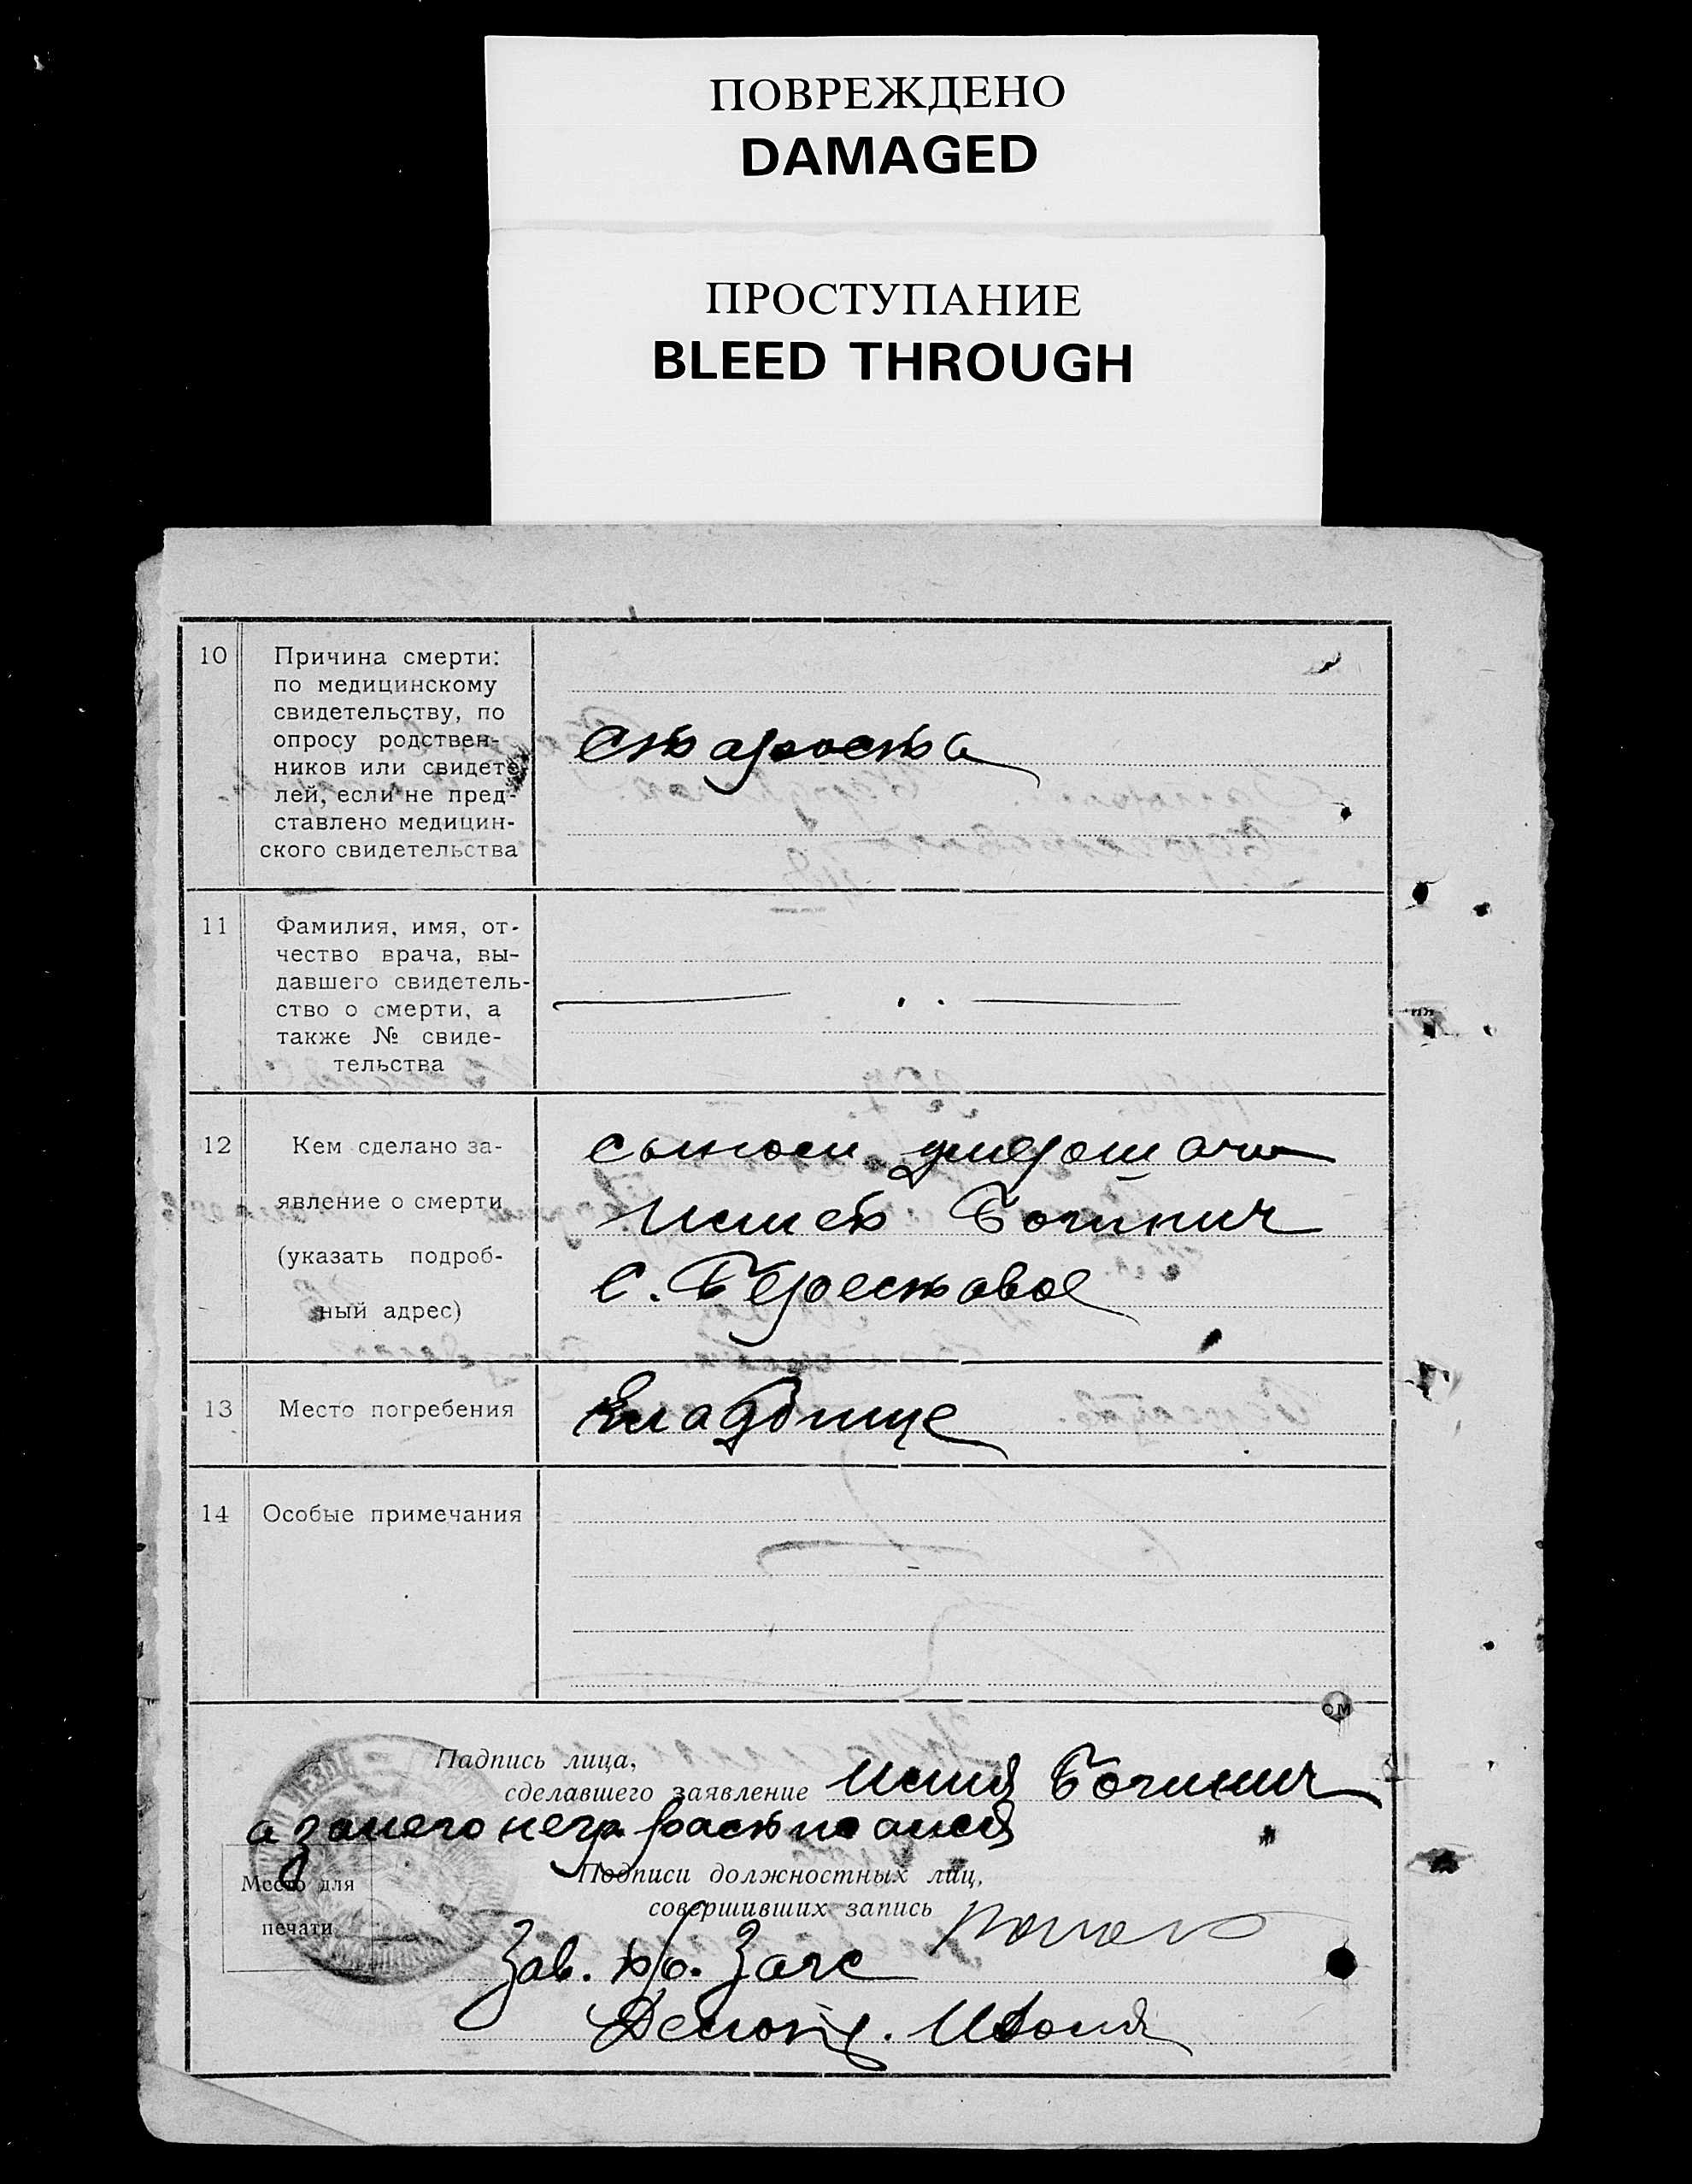 ПОВРЕЖДЕНО
DAMAGED
ПРОСТУПАНИЕ
BLEED THROUGH
10 Причина смерти:
по медицинскому
свидетельству, по
опросу родствен-
ников или свидете
лей, если не пред-
ставлено медицин-
ского свидетельства
старость
11 Фамилия, имя, от-
чество врача, вы-
давшего свидетель-
ство о смерти, а
также № свиде-
тельства
12 Кем сделано за-
явление о смерти
(указать подроб-
ный адрес)
сыном
с. Берестовое
13 Место погребения
Кладбище
14 Особые примечания
Падпись лица,
сделавшего заявление
а за него негр.
Место для
печати
Подписи должностных лиц,
совершивших запись
Зав. б/о. Загс